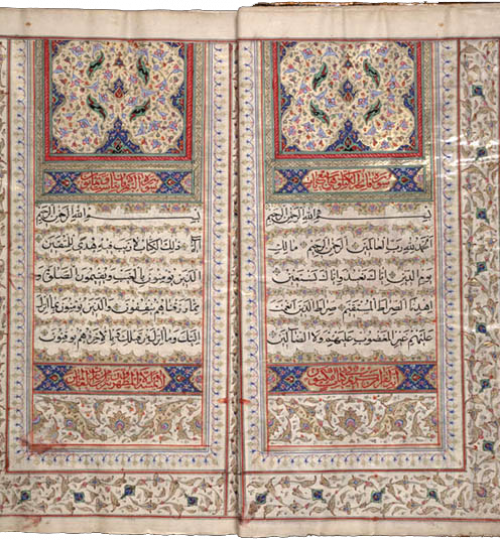 سورة فاتحة الكتاب
بسم الله الرحمن الرحيم
الحمد لله رب العالمين الرحمن الرحيم مالك
يوم الدين اياك نعبد واياك نستعين
اهدنا الصراط المستقيم صراط الذين انعمت
عليهم غير المغضوب عليهم ولا الضالين
سورة البقرة
بسم الله الرحمن الرحيم
الم ذلك الكتاب لا ريب فيه هدى للمتقين
الذين يؤمنون بالغيب ويقيمون الصلوة و
مما رزقناهم ينفقون والذين يؤمنون بما انزل
اليك وما انزل من قبلك وبالاخرة هم يوقنون